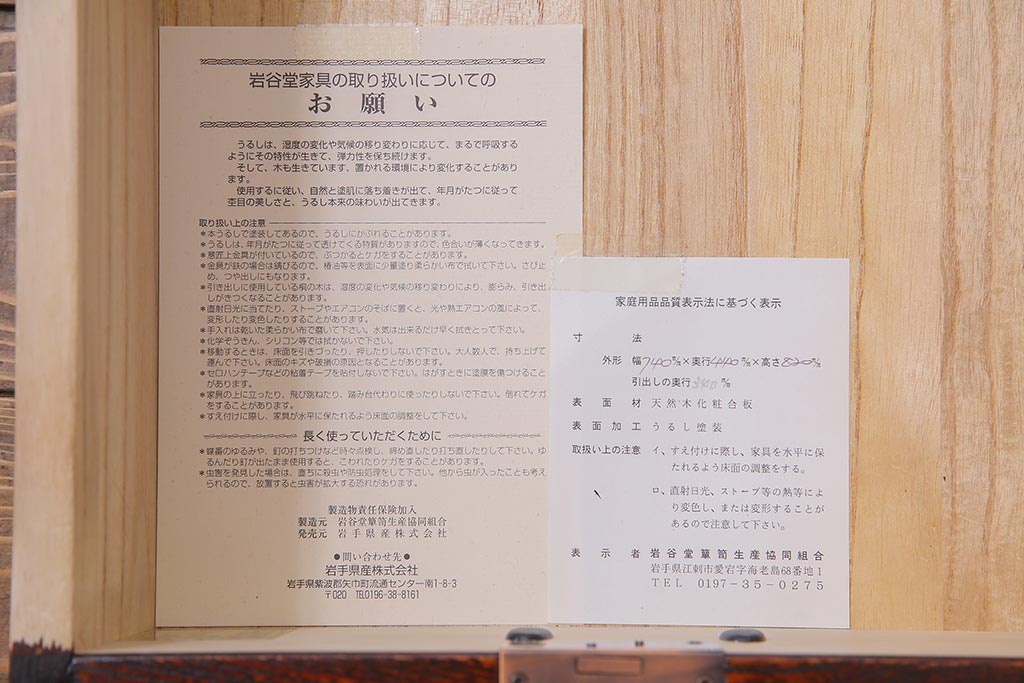 岩谷堂家具の取り扱いについての
お願い
うるしは、湿度の変化や気候の移り変わりに応じて、まるで呼吸する
ようにその特性が生きて、弾力性を保ち続けます。
そして、木も生きています、置かれる環境により変化することがあり
ます。
使用するに従い、自然と塗肌に落ち着きが出て、年月がたつに従って
杢目の美しさと、うるし本来の味わいが出てきます。
取り扱い上の注意
*本うるしで塗装してあるので、うるしにかぶれることがあります。
*うるしは、年月がたつに従って透けてくる特質がありますので、色合いが薄くなってきます。
*意匠上金具が付いているので、ぶつかるとケガをすることがあります。
*金具が鉄の場合は錆びるので、椿油等を表面に少量塗り柔らかい布で拭いて下さい。さび止
め、つや出しにもなります。
*引き出しに使用している桐の木は、湿度の変化や気候の移り変わりにより、膨らみ、引き出
しがきつくなることがあります。
*直射日光に当てたり、ストーブやエアコンのそばに置くと、光や熱エアコンの風によって、
変形したり変色したりすることがあります。
*手入れは乾いた柔らかい布で磨いて下さい。水気は出来るだけ早く拭きとって下さい。
*化学ぞうきん、シリコン等では拭かないで下さい。
*移動するときは、床面を引きづったり、押したりしないで下さい。大人数人で、持ち上げて
運んで下さい。床面のキズや破損の原因となることがあります。
*セロハンテープなどの粘着テープを貼付しないで下さい。はがすときに塗膜を傷つけること
があります。
*家具の上に立ったり、飛び跳ねたり、踏み台代わりに使ったりしないで下さい。倒れてケガ
をすることがあります。
*すえ付けに際し、家具が水平に保たれるよう床面の調整をして下さい。
長く使っていただくために
*蝶番のゆるみや、釘の打ちつけなど時々点検し、締め直したり打ち直したりして下さい。ゆ
るんだり釘が出たまま使用すると、こわれたりケガをすることがあります。
*虫害を発見した場合は、直ちに殺虫や防虫処理をして下さい。他から虫が入ったことも考え
られるので、放置すると虫害が拡大する恐れがあります。
製造物責任保険加入
製造元 岩谷堂箪笥生産協同組合
発売元 岩手県産株式会社
●問い合わせ先●
岩手県産株式会社
岩手県紫波郡矢巾町流通センター南1-8-3
〒020 TEL0196-38-8161
家庭用品品質表示法に基づく表示
寸法
外形 幅740㍉×奥行440㍉×高さ820㍉
引出しの奥行340㍉
表面材 天然木化粧合板
表面加工 うるし塗装
取扱い上の注意 イ、すえ付けに際し、家具を水平に保
たれるよう床面の調整をする。
ロ、直射日光、ストーブ等の熱等によ
り変色し、または変形することが
あるので注意して下さい。
表示者 岩谷堂箪笥生産協同組合
岩手県江刺市愛宕字海老島68番地1
TEL 0197-35-0275